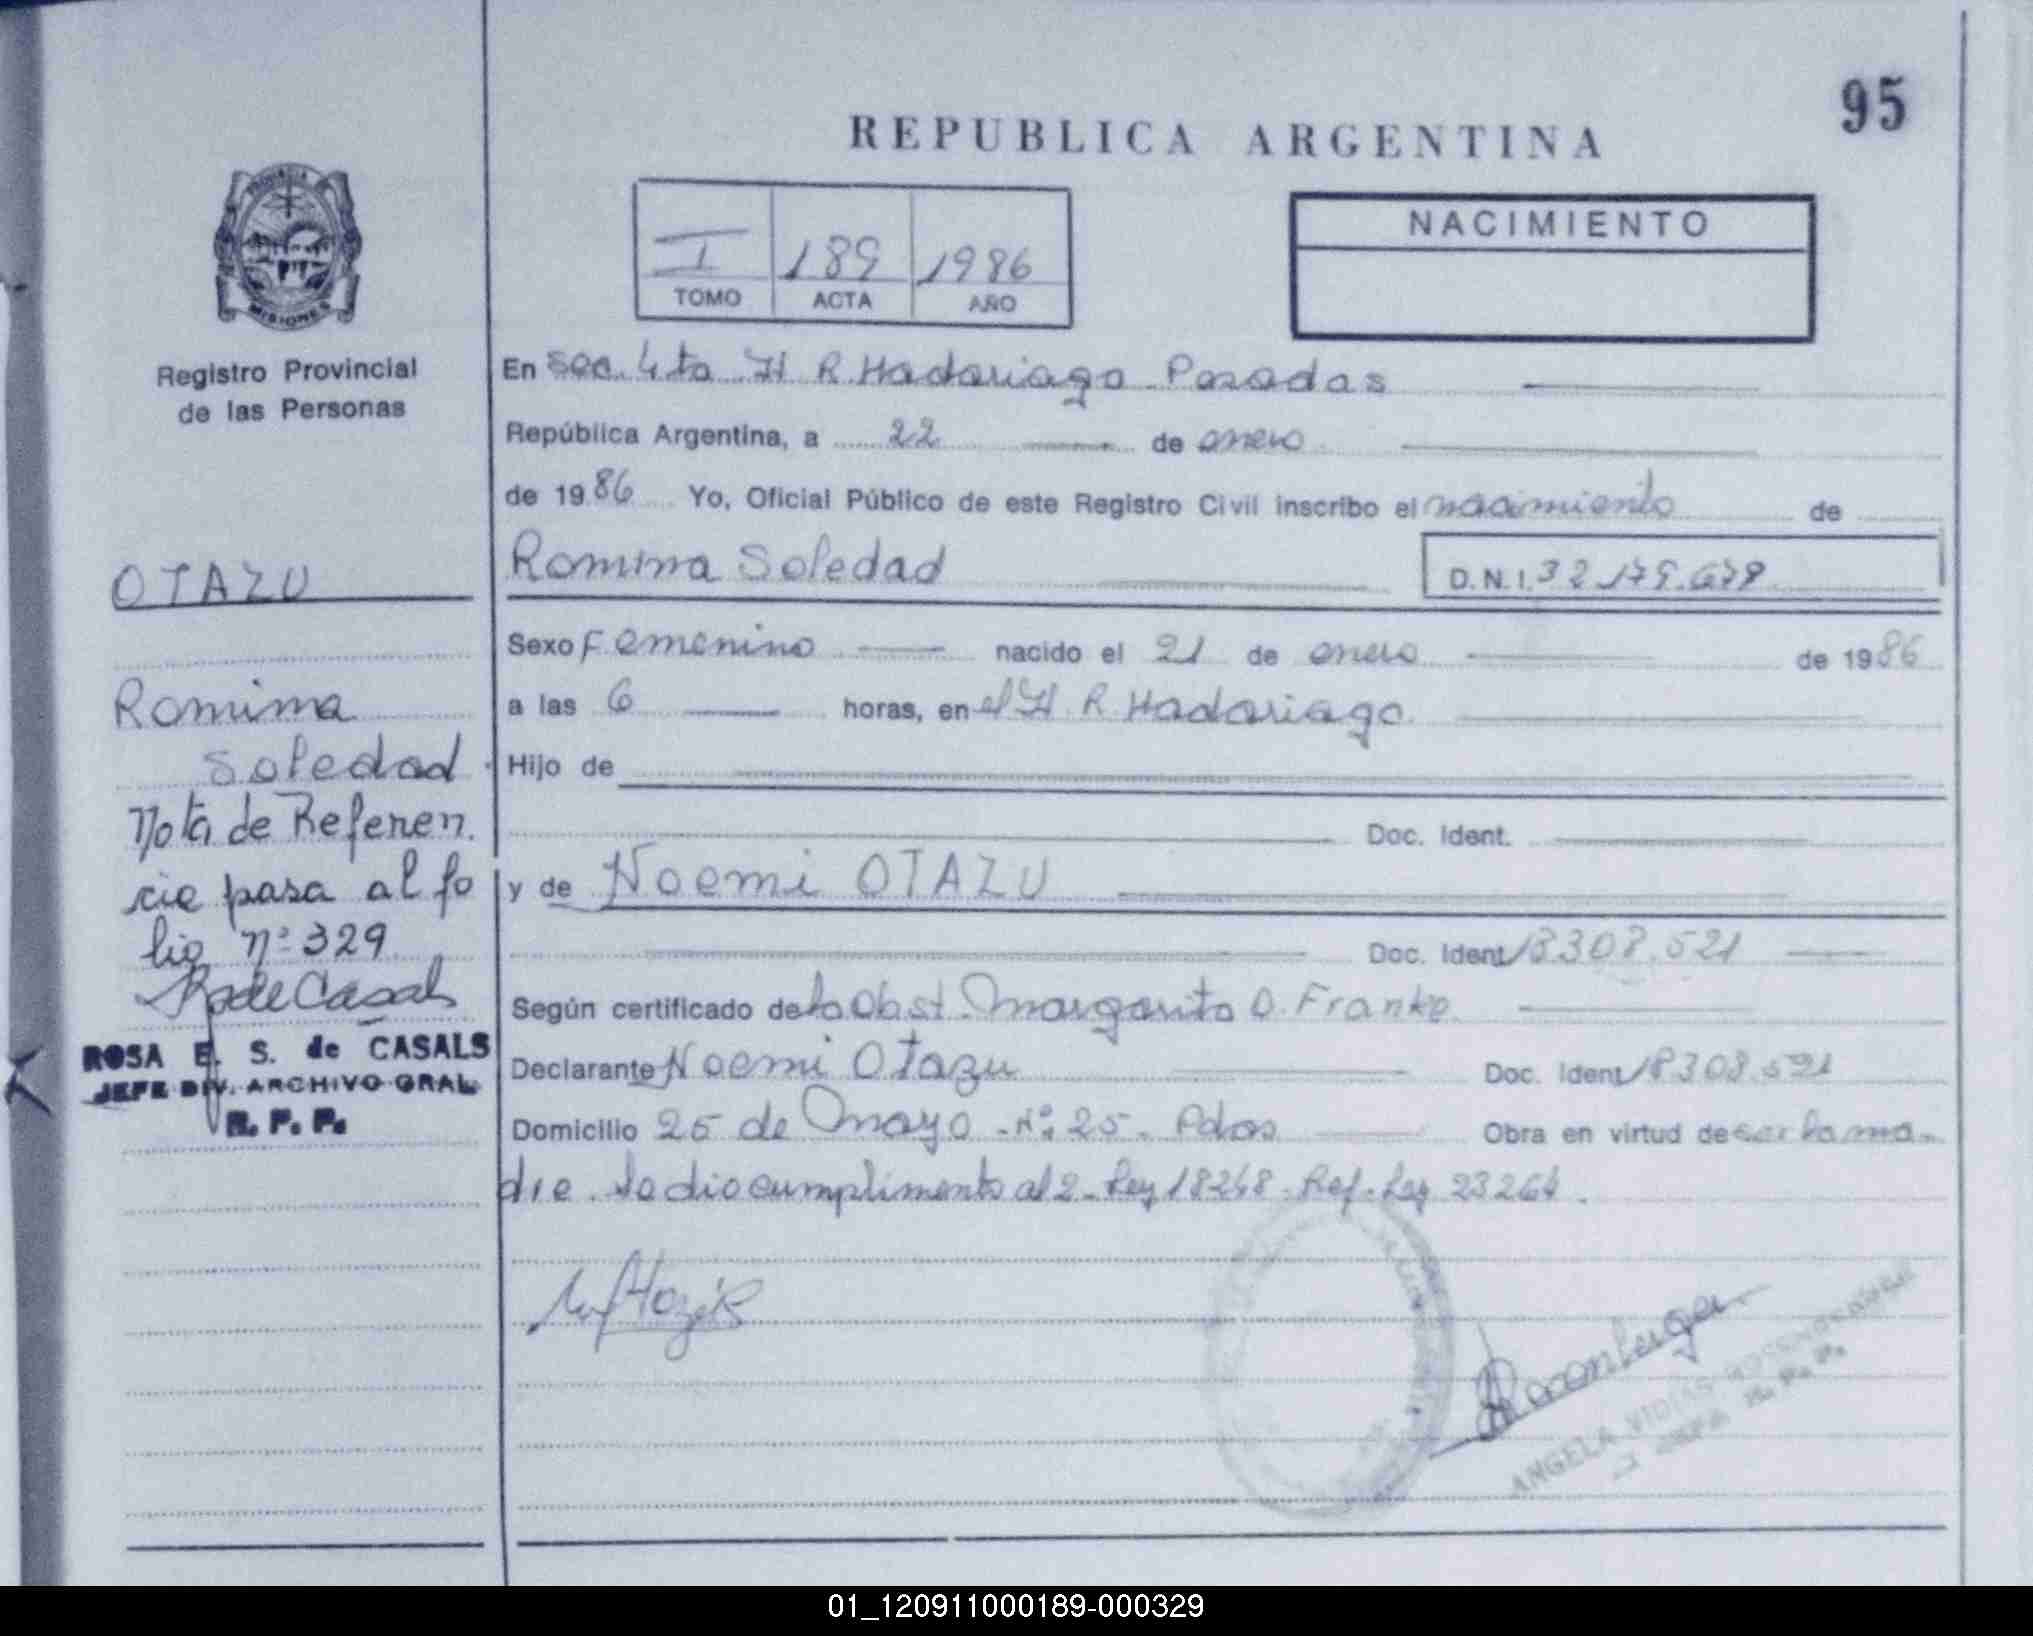 95
REPUBLICA ARGENTINA
PROVINCIA
MISIONES
Registro Provincial
de las Personas
I 189 1986
TOMO ACTA AÑO
NACIMIENTO
En sec. 4ta H R. Madariaga Posadas
República Argentina, a 22 de enero
de 1986 Yo, Oficial Público de este Registro Civil inscribo el nacimiento de
Romina Soledad D.N.I. 32.179.679
Sexo Femenino nacido el 21 de enero de 1986
a las 6 horas, en el H R. Madariaga.
Hijo de
Doc. Ident.
y de Noemi OTAZU
Doc. Ident. 18308.521
Según certificado de la Obst. Margarita D. Franke.
Declarante Noemi Otazu Doc. Ident 18308.521
Domicilio 25 de Mayo Nº 25. Pdas Obra en virtud de ser la ma-
dre se dio cumplimento al 2- Ley 18248- Ref. Ley 23264.
OTAZU
Romina
Soledad
Nota de Referen.
cia pasa al fo
lio nº 329
R de Casals
ROSA E. S. de CASALS
JEFE DIV. ARCHIVO GRAL
R. P. P.
ANGELA
R. P. P.
01_120911000189-000329